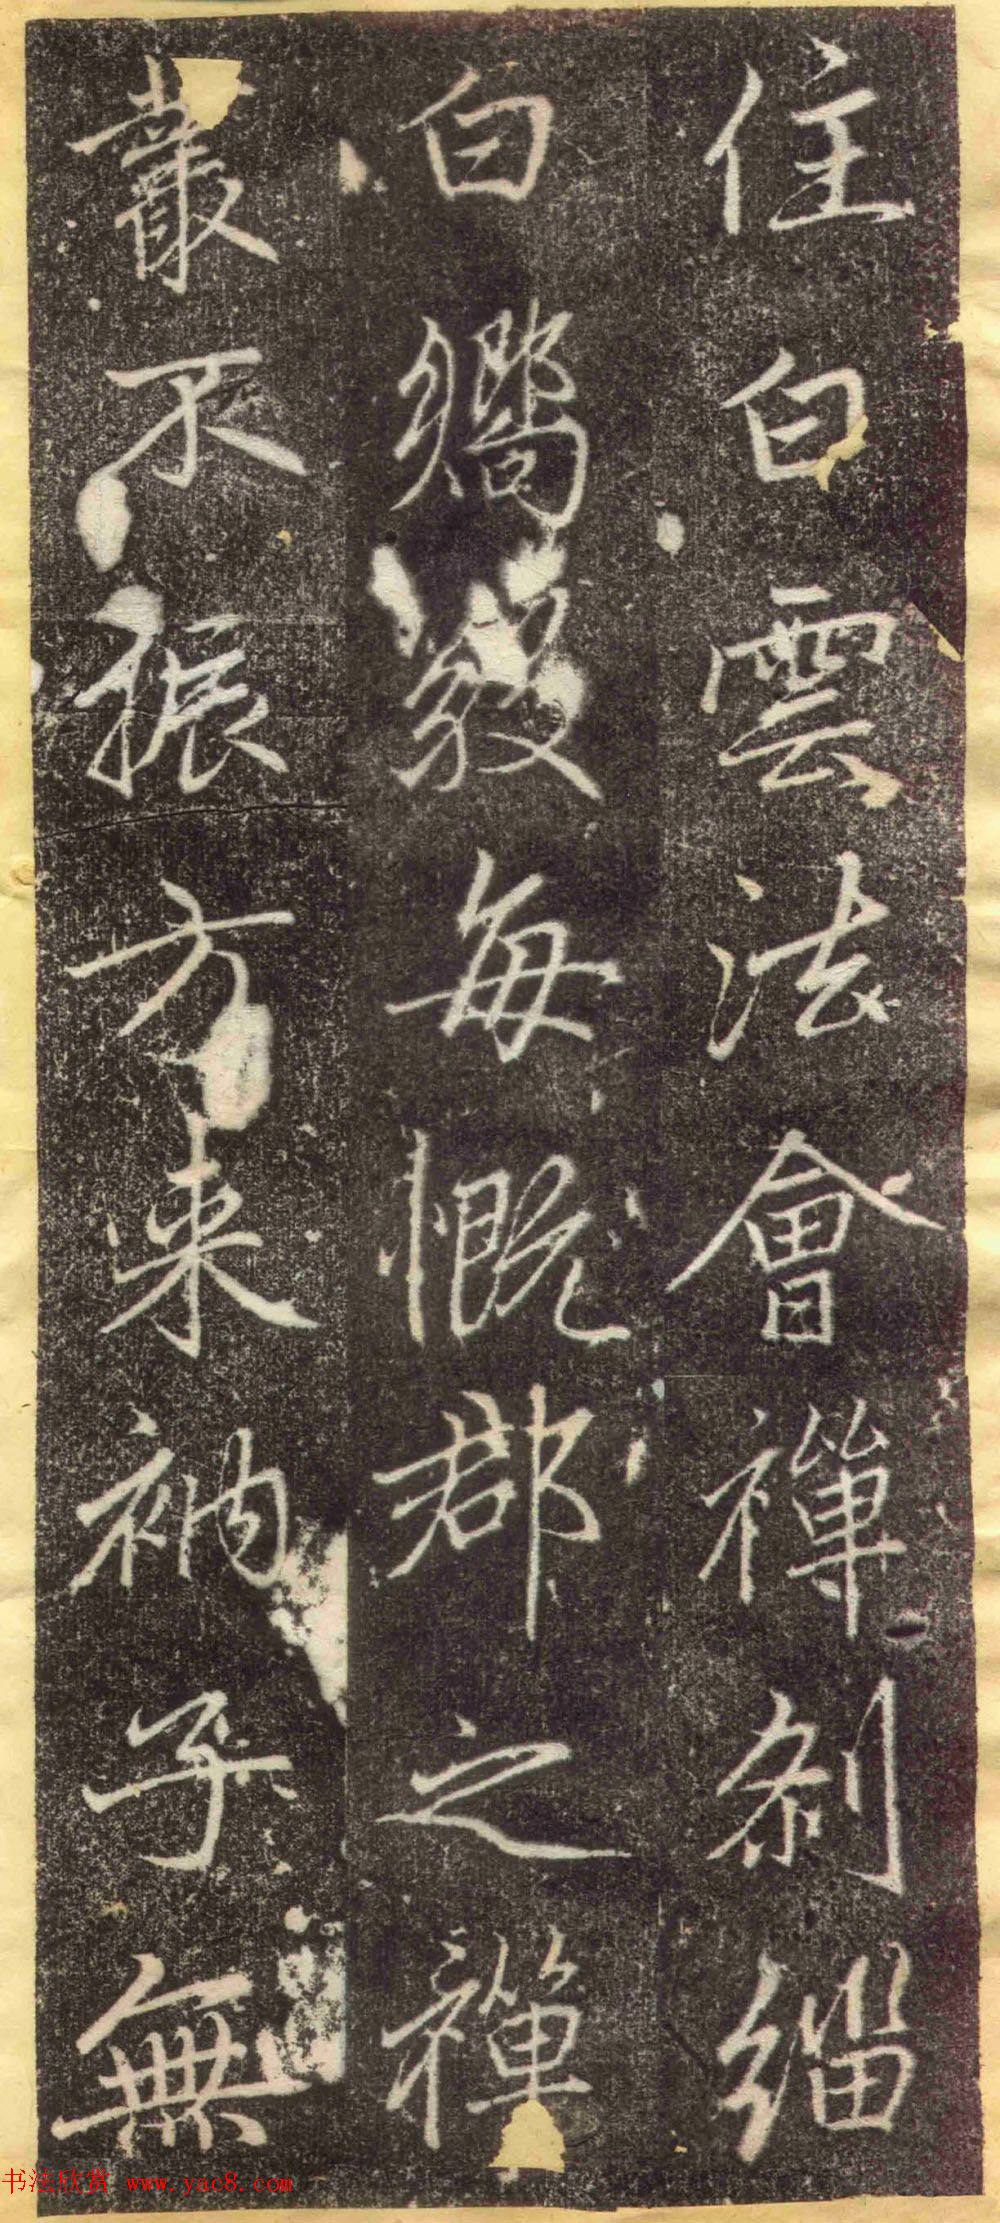 住白雲法會禪刹緇
白嚮每慨郡之禪
叢不振方來衲子無
书法欣赏 www.yac8.com